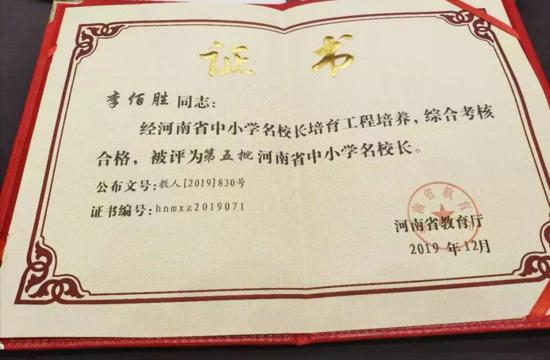 证书
李佰胜同志：
经河南省中小学名校长培育工程培养，综合考核
合格，被评为第五批河南省中小学名校长。
公布文号：教人[2019]830号
证书编号：hnmxz2019071
河南省教育厅
2019 年12月